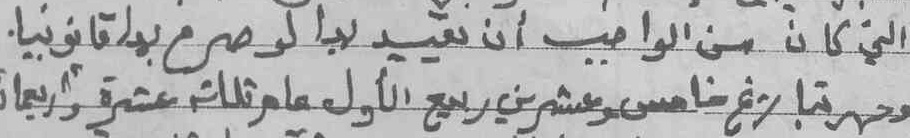 التي كان من الواجب أن تقيد بها لو صرح بها قانونيا.
وحرر بتاريخ خامس وعشرين ربيع الأول عام ثلاثة عشرة وأربعمائة